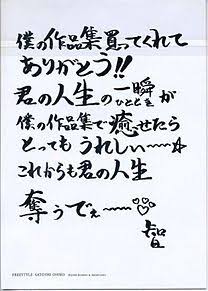 僕の作品集買ってくれて
ありがとう!!
君の人生の一瞬が
ひととき
僕の作品集で癒せたら
とっても うれしい〜〜☆
これからも君の人生
奪うでぇ〜〜♡♡
智
FREESTYLE SATOSHI OHNO